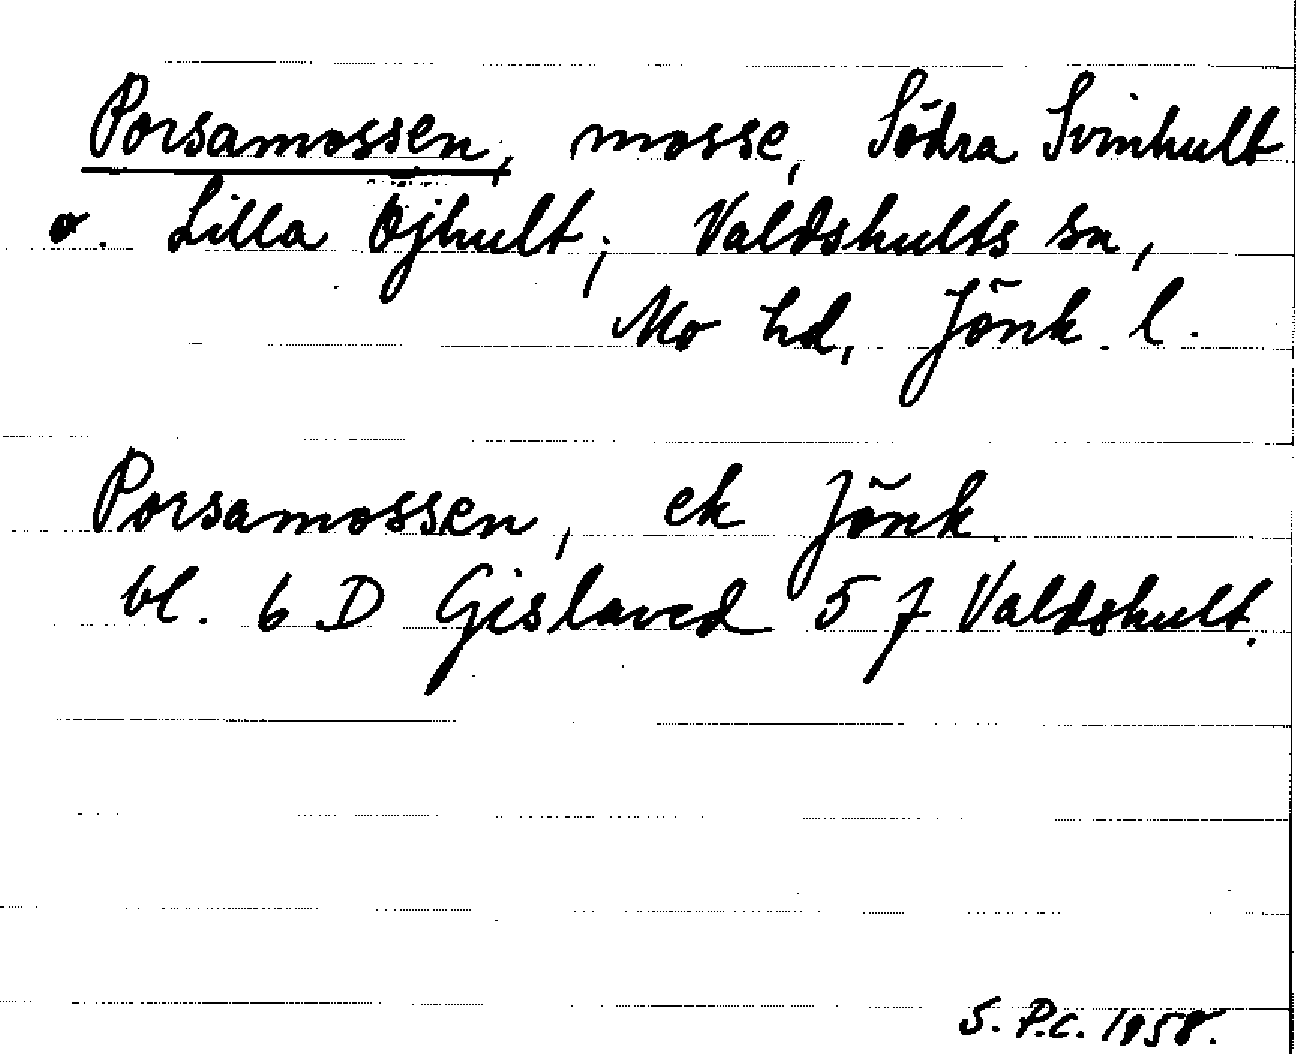 Porsamossen, mosse, Södra Svinhult
o. Lilla Öjhult, Valdshults sn,
Mo hd, Jönk. l.
Porsamossen, ek Jönk.
bl. 6 D Gislaved 5 f Valdshult.
S. P.C. 1958.